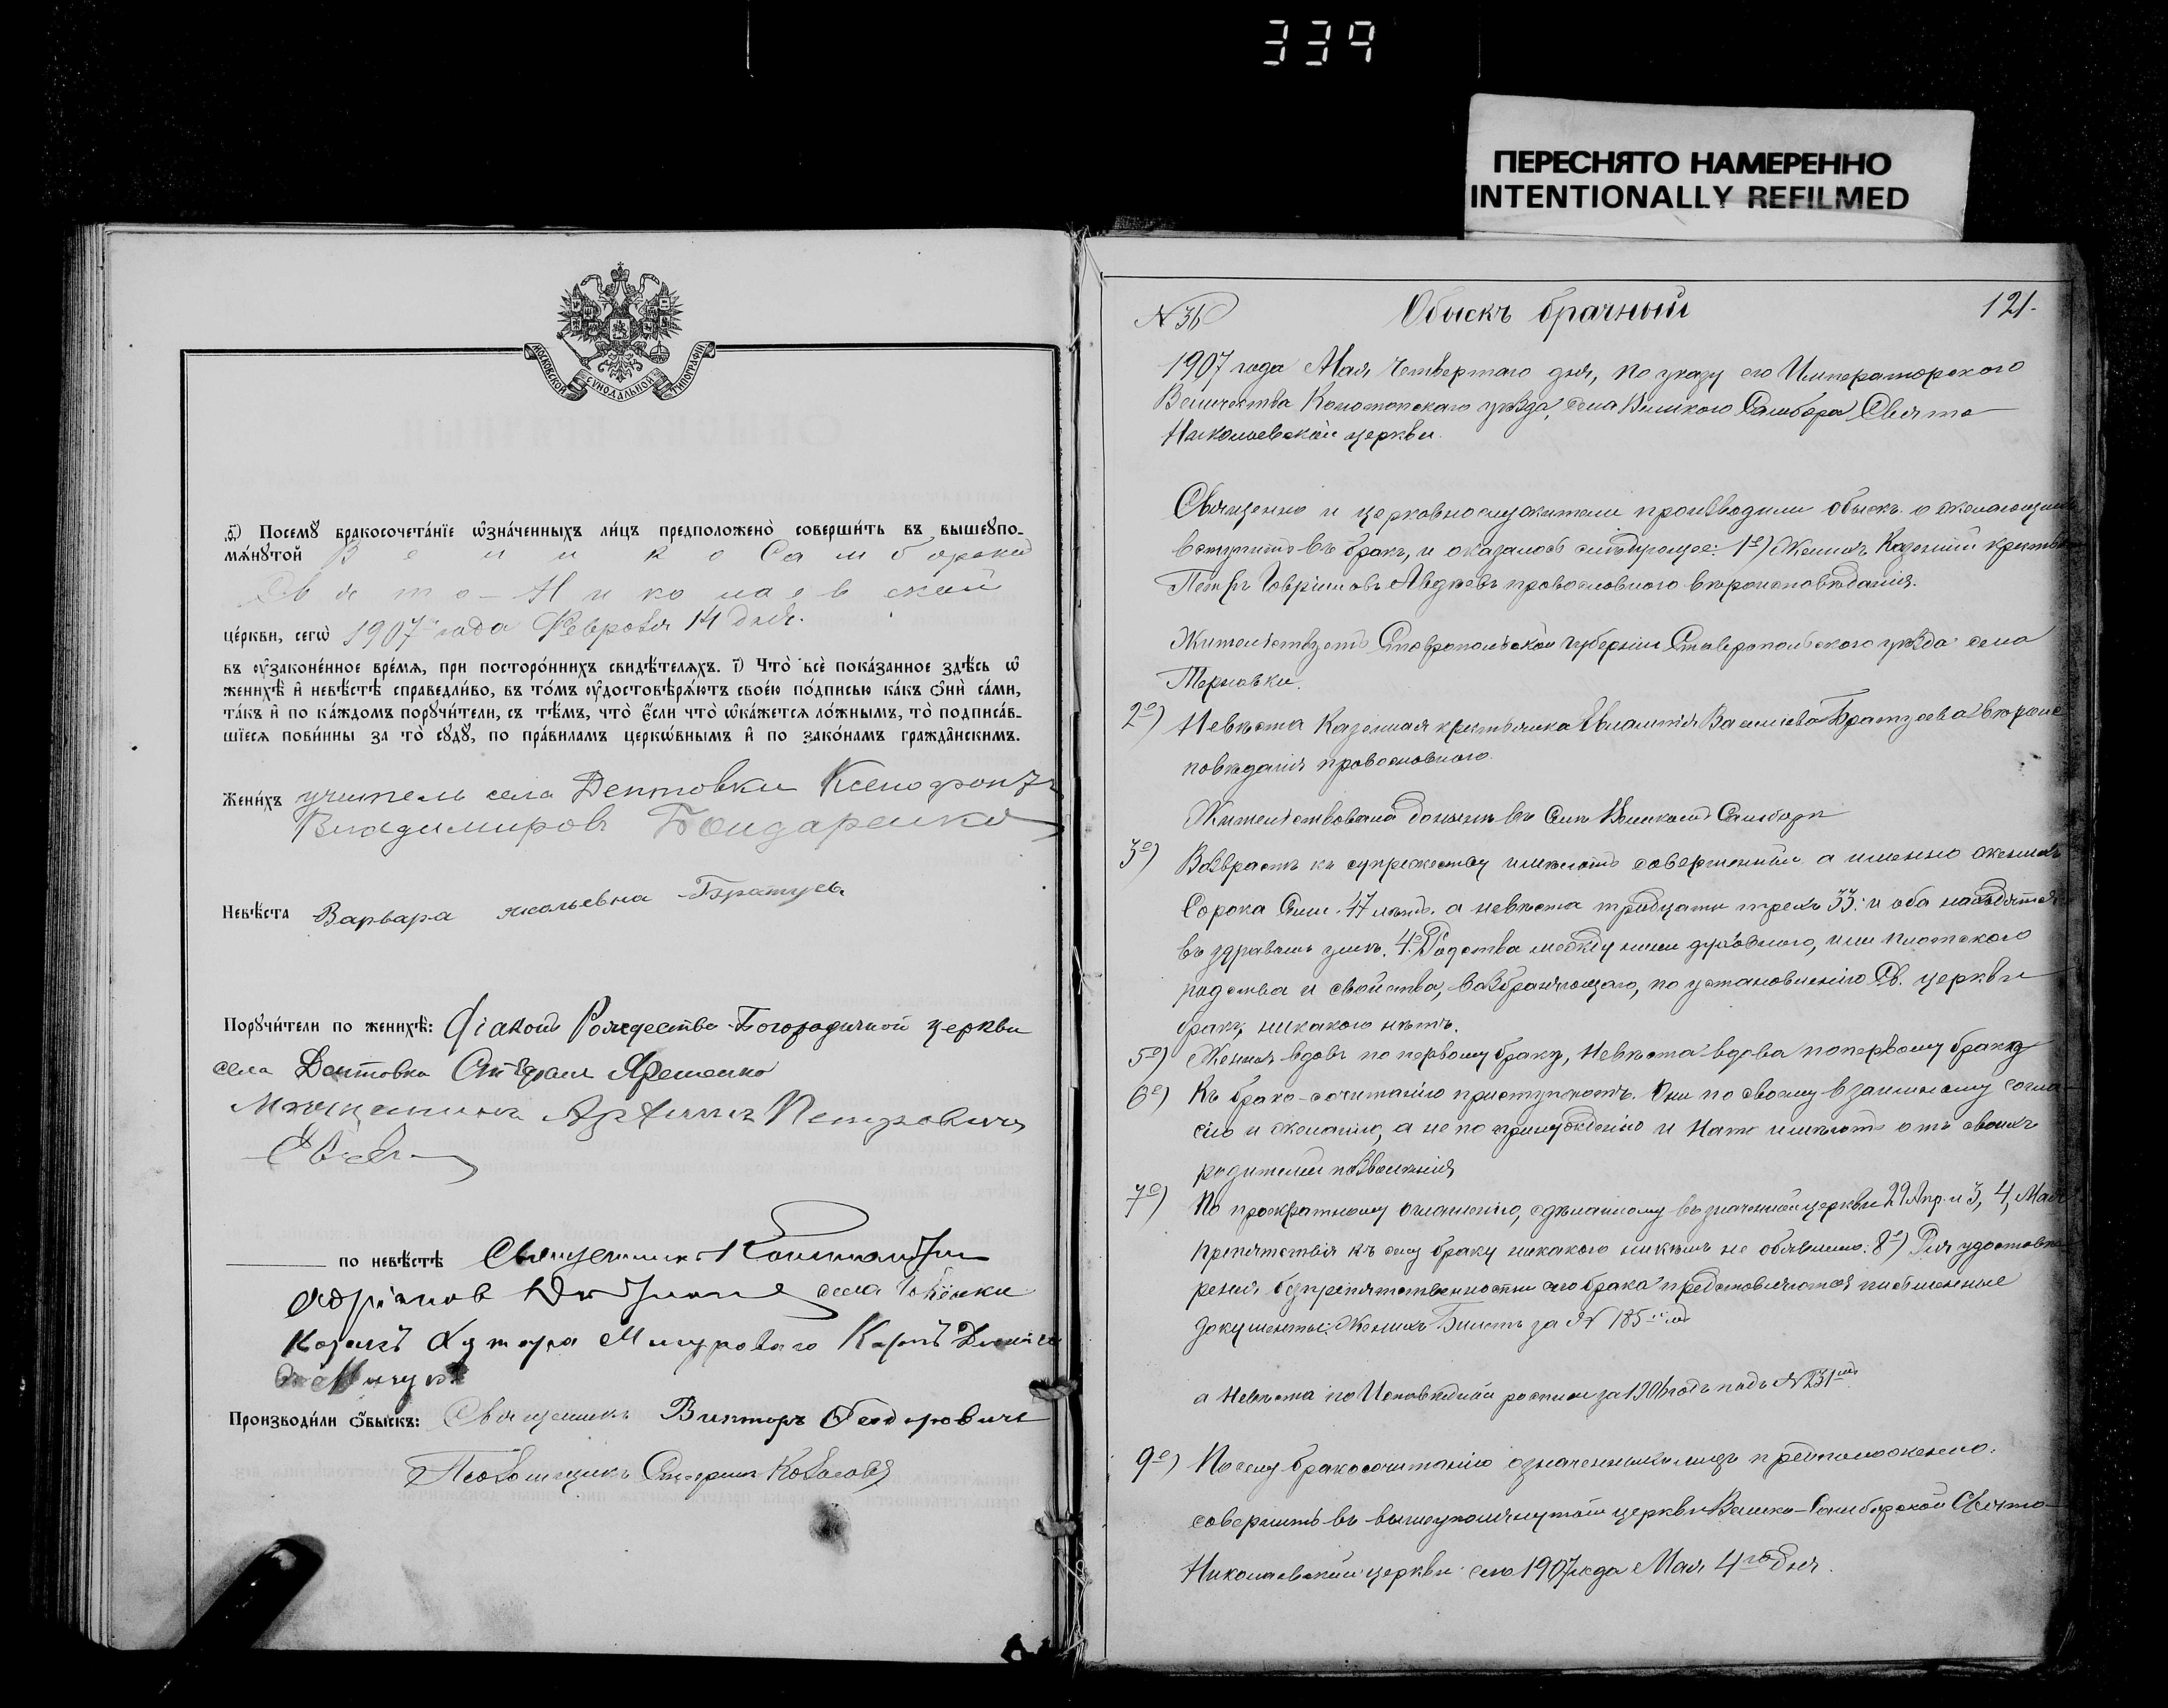 339
ПЕРЕСНЯТО НАМЕРЕННО
INTENTIONALLY REFILMED
МОСКОВСКОЙ СУНОДАЛЬНОЙ ТИПОГРАФІИ
Посемꙋ̀ бракосочета́нїе ѡ҆зна́ченныхъ ли́цъ предположено̀ соверши́ть въ вышеꙋпо-
мѧ́нꙋтой Велико Самборской
Свято-Николаевской
це́ркви, сегѡ̀ 1907 года Февраля 14 дня.
въ ᲂу҆зако́ненное вре́мѧ, при посторо́ннихъ свидѣ́телѧхъ. і҃) Что̀ всѐ пока́занное здѣ́сь ѡ҆
женихѣ̀ и҆ невѣ́стѣ справедли́во, въ то́мъ ᲂу҆достовѣрѧ́ютъ свое́ю по́дписью ка́къ ѻ҆нѝ са́ми,
та́къ и҆ по ка́ждомъ порꙋчи́тели, съ тѣ́мъ, что̀ є҆́сли что̀ ѡ҆ка́жетсѧ ло́жнымъ, то̀ подписа́в-
шїесѧ пови́нны за то̀ сꙋдꙋ̀, по пра́виламъ церкѡ́внымъ и҆ по зако́намъ гражда́нскимъ.
Жени́хъ учитель села Дептовки Ксенофонтъ
Владимировъ Бондаренко
Невѣ́ста Варвара Братусь
Порꙋчи́тели по женихѣ̀: Діаконъ Рождество-Богородичной церкви
села Дептовки
Петровичъ
по невѣ́стѣ Священникъ
села
Козакъ Хутора Карпъ
Производи́ли ѻ҆́быскъ: Священникъ Викторъ Феодоровичъ
Псаломщикъ
N 36 Обыскъ брачный 121.
1907 года Мая Четвертаго дня, по указу его Императорского
Величества Конотопскаго уѣзда, села Великого Самбора Свято
Николаевской церкви.
Священно и церковнослужители производили обыскъ о желающихъ
вступить въ бракъ, и оказалось слѣдующее: 1е) Женихъ Казенный крестья
Петръ Гавріиловъ православного вѣроисповѣданія.
Жительствуетъ Ставропольской губерніи Ставропольского уѣзда села
Терновки.
2е) Невѣста Казенная крестьянка Васильева Братусева вѣроис
повѣданія православного.
Жительствовала донынѣ въ Селѣ Великомъ Самборѣ
3е) Возврастъ къ супружеству имѣютъ совершенный а именно женихъ
Сорока Семи 47 лѣтъ. а невѣста тридцати трехъ 33. и оба находятся
въ здравомъ умѣ. 4е Родства между ними духовного, или плотского
родства и свойства, возбраняющаго, по установленію Св. церкви
бракъ, никакого нѣтъ.
5е) Женихъ вдовъ по первому браку, Невѣста вдова по первому браку
6е) Къ брако-сочитанію приступаютъ. Они по своему взаимному согла-
сію и желанію, а не по принужденію и на то имѣютъ отъ своихъ
родителей позволенія
7е) По троекратному оглашенію, сдѣланному въ значенной церкви 29 Апр. и 3, 4, Мая
препятствія къ сему браку никакого никѣмъ не объявлено. 8е) Для удостовѣ-
ренія безпрепятственности сего брака представляются письменные
документы: Женихъ Билетъ за N 185
а Невѣста по Исповѣдной росписи за 1906 годъ подъ N 231
9е) По сему бракосочитанію означенныхъ лицъ предположено.
совершить въ вышеупомянутой церкви Велико-Самборской Свято-
Николаевской церкви сего 1907 года Мая 4го Дня.